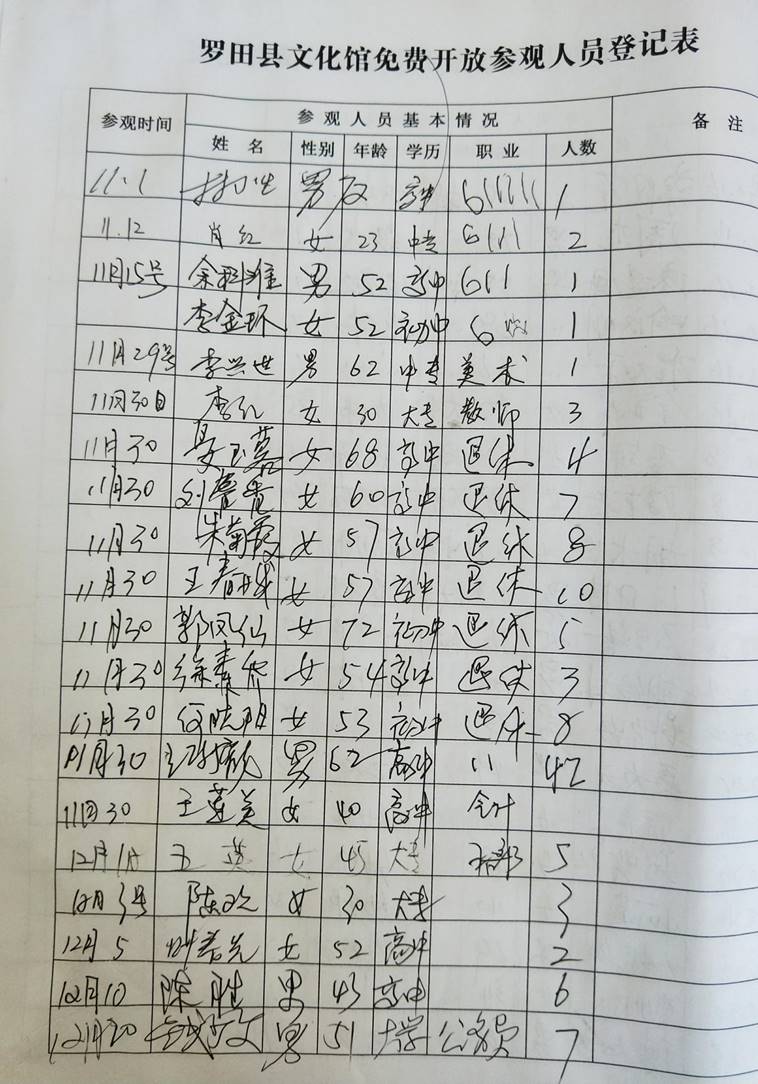 罗田县文化馆免费开放参观人员登记表
参观时间 参观人员基本情况 备注
姓名 性别 年龄 学历 职业 人数
11.1 男 高中 1
11.12 肖红 女 23 中专 2
11月15号 男 52 高中 1
李金环 女 52 初中 1
11月29号 李兴世 男 62 中专 美术 1
11月30日 李红 女 30 大专 教师 3
11月30 女 68 高中 退休 4
11月30 女 60 高中 退休 7
11月30 朱菊霞 女 57 高中 退休 8
11月30 女 57 高中 退休 10
11月30 郭凤仙 女 72 初中 退休 5
11月30 女 54 高中 退休 3
11月30 何晓阳 女 53 高中 退休 8
11月30 男 62 高中 11 42
11月30 王莲美 女 40 高中 会计
12月1日 王英 女 45 大专 5
12月3号 陈欢 女 30 大专 3
12月5 女 52 高中 2
12月10 陈胜 男 43 高中 6
12月20 男 51 大学 公务员 7